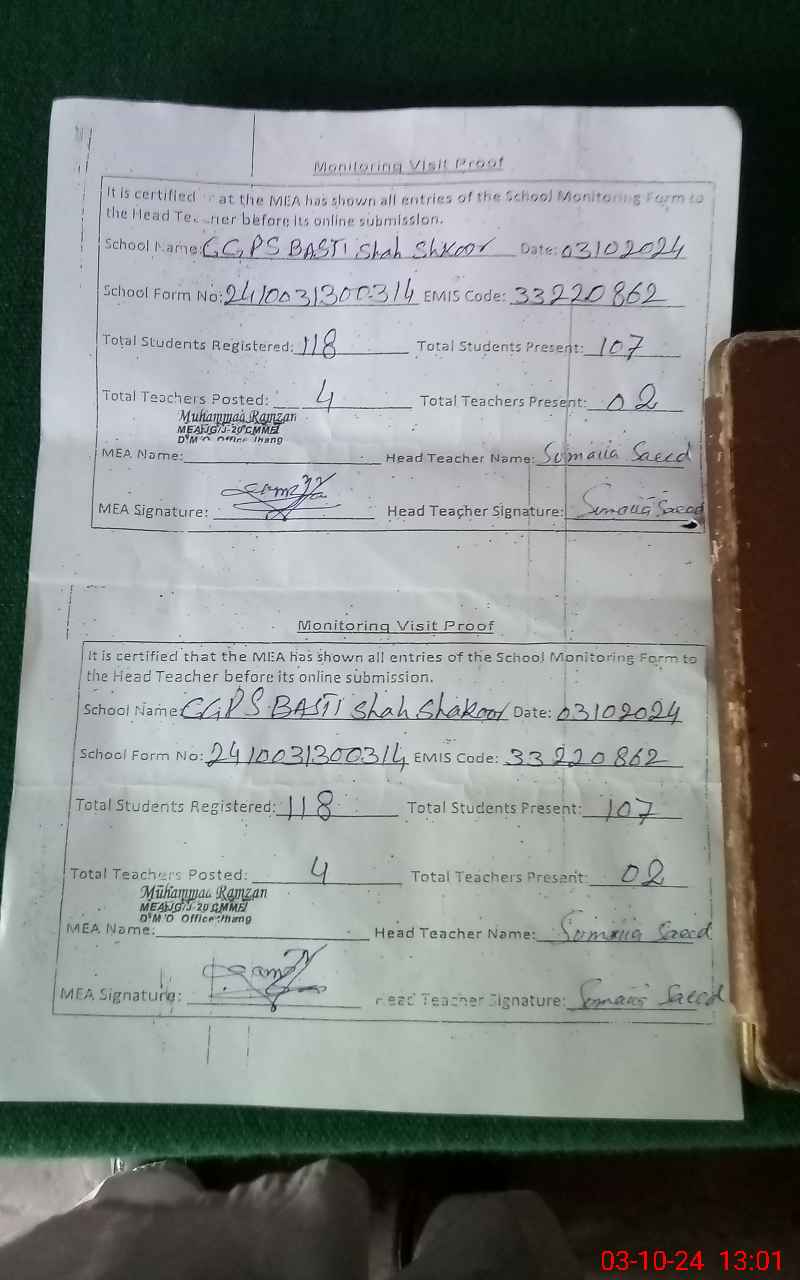 Monitoring Visit Proof
It is certified at the MEA has shown all entries of the School Monitoring Form to
the Head Teacher before its online submission.
School Name: GGPS BASTI Shah Shkoor Date: 03102024
School Form No: 2410031300314 EMIS Code: 33220862
Total Students Registered: 118 Total Students Present: 107
Total Teachers Posted: 4 Total Teachers Present: 02
Muhammad Ramzan
MEA
Office Jhang
MEA Name: Head Teacher Name: Somaiia Saeed
MEA Signature: Head Teacher Signature: Somaiia Saeed
Monitoring Visit Proof
It is certified that the MEA has shown all entries of the School Monitoring Form to
the Head Teacher before its online submission.
School Name: GGPS BASTI Shah Shakoor Date: 03102024
School Form No: 2410031300314 EMIS Code: 33220862
Total Students Registered: 118 Total Students Present: 107
Total Teachers Posted: 4 Total Teachers Present: 02
Muhammad Ramzan
MEA
Office Jhang
MEA Name: Head Teacher Name: Somaiia Saeed
MEA Signature: Head Teacher Signature: Somaiia Saeed
03-10-24 13:01